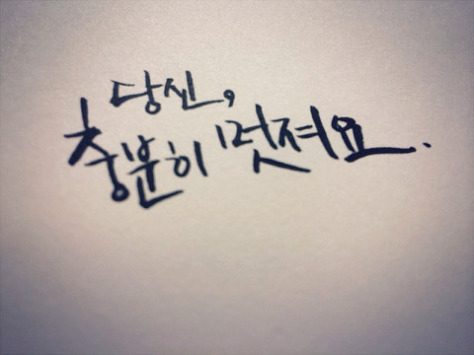 당신,
충분히 멋져요.